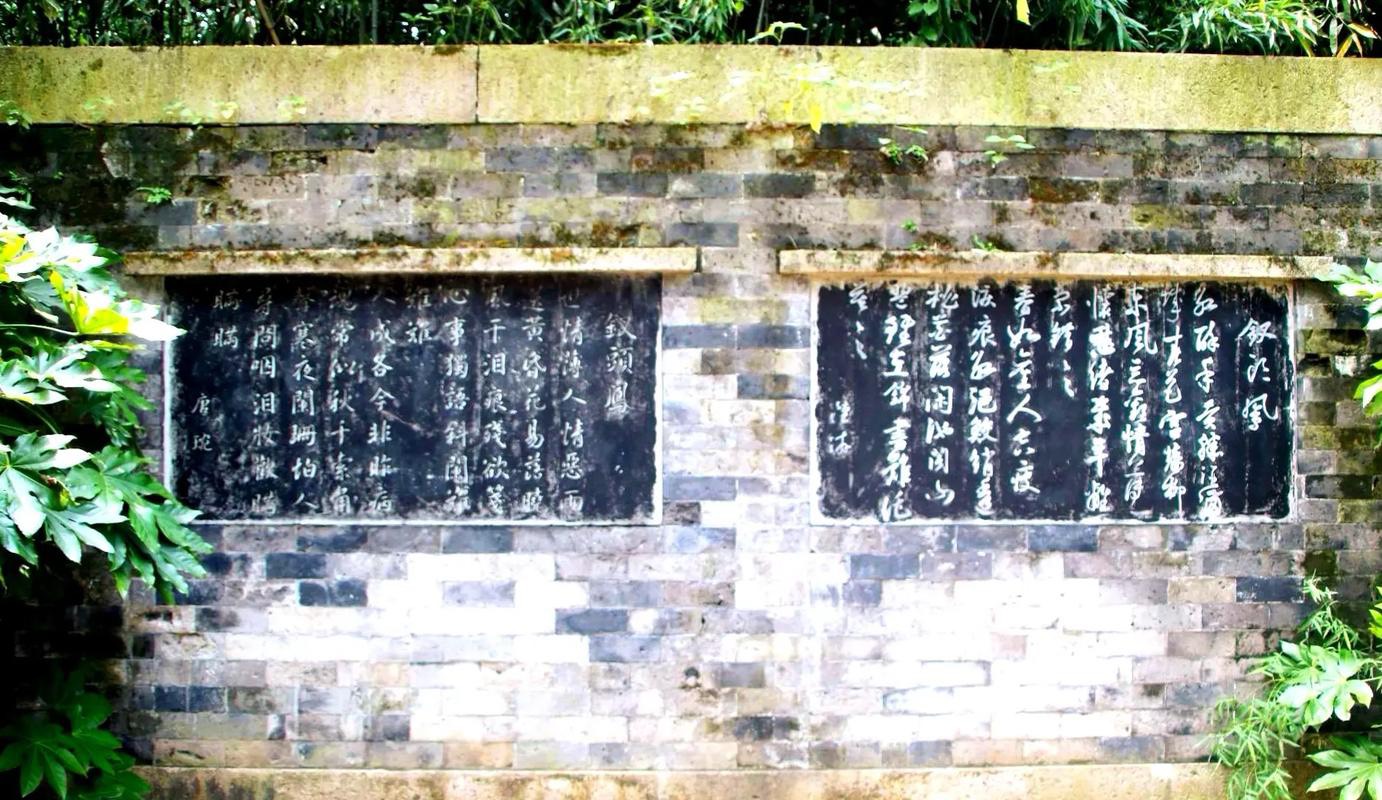 釵頭鳳
紅酥手黃縢酒滿
城春色宮牆柳
東風惡歡情薄一
懷愁緒幾年離
索錯〻〻
春如舊人空瘦
淚痕紅浥鮫綃透
桃花落閑池閣山
盟雖在錦書難託
莫〻〻
陸游
釵頭鳳
世情薄人情惡雨
送黃昏花易落曉
風干淚痕殘欲箋
心事獨語斜闌難
難難
人成各今非昨病
魂常似秋千索角
聲寒夜闌珊怕人
尋問咽淚妝歡瞞
瞞瞞
唐琬